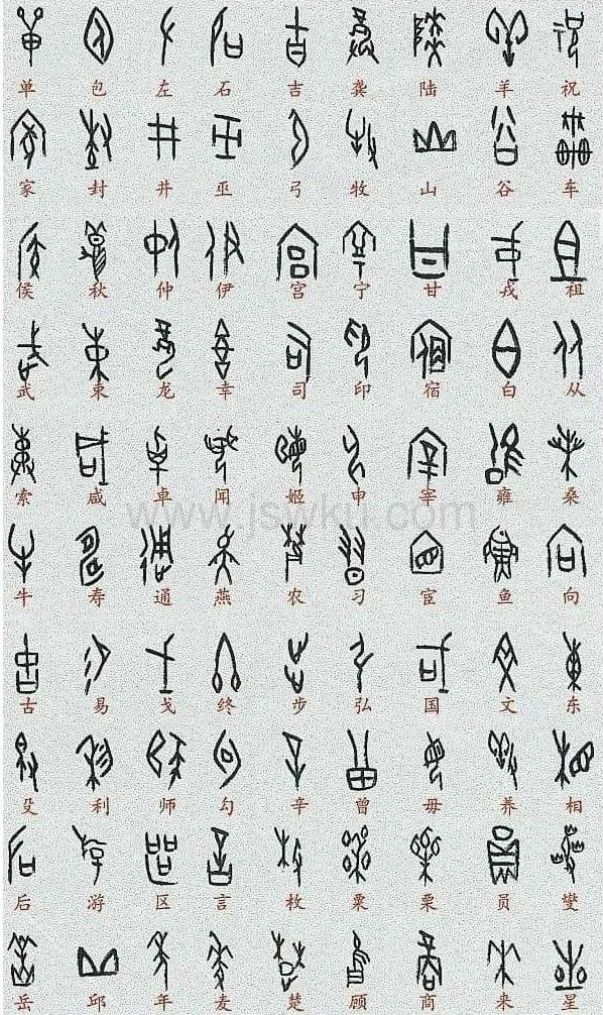 单 包 左 石 吉 龚 陆 羊 祝
家 封 井 巫 弓 牧 山 谷 车
侯 秋 仲 伊 宫 宁 甘 戎 祖
武 束 龙 幸 司 印 宿 白 从
索 咸 卓 闻 姬 申 宰 雍 桑
www.jswku.com
牛 寿 通 燕 农 习 宦 鱼 向
古 易 戈 终 步 弘 国 文 东
殳 利 师 勾 辛 曾 毋 养 相
后 游 区 言 枚 粟 栗 员 燮
岳 邱 年 麦 楚 顾 商 来 星